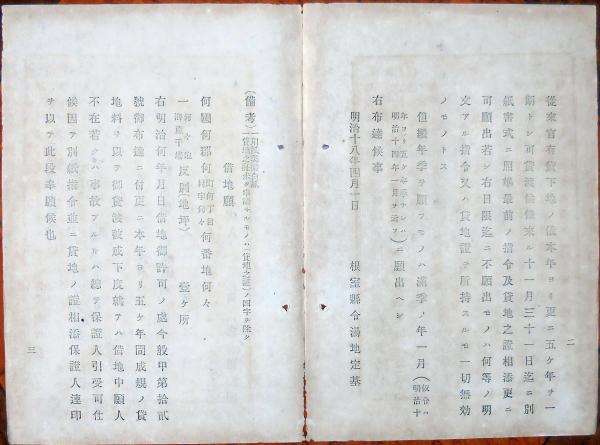 二
從來官有貸下地ノ儀本年ヨリ更ニ五ケ年ヲ一
期トシ可貸渡候條來ル十一月三十一日迄ニ別
紙書式ニ照準最前ノ指令及貸地之證相添更ニ
可願出若シ右日限迄ニ不願出モノハ何等ノ明
文アル指令又ハ貸地證ヲ所持スルモ一切無効
ノモノトス
但繼年季ヲ願フモノハ滿季ノ年一月(假令ハ明治十
年ヨリ五ケ年季ナレハ明治十四年一月ヲ云フ)ニ願出ヘシ
右布達候事
明治十八年四月一日
根室縣令湯地定基
(備考)
ノ四字ヲ除ク
借地願
何國何郡何町何丁目村字何々何番地何々
一何々地海產干場反別地坪
壹ケ所
右明治何年月日借地御許可ノ處今般甲第拾貳
號御布達ニ付更ニ本年ヨリ五ケ年間成規ノ貸
地料ヲ以テ御貸渡被成下度就テハ借地中願人
不在若クハ事故アルトキハ總テ保證人引受可仕
候因テ別紙指令並ニ貸地ノ證相添保證人連印
ヲ以テ此段奉願候也
三